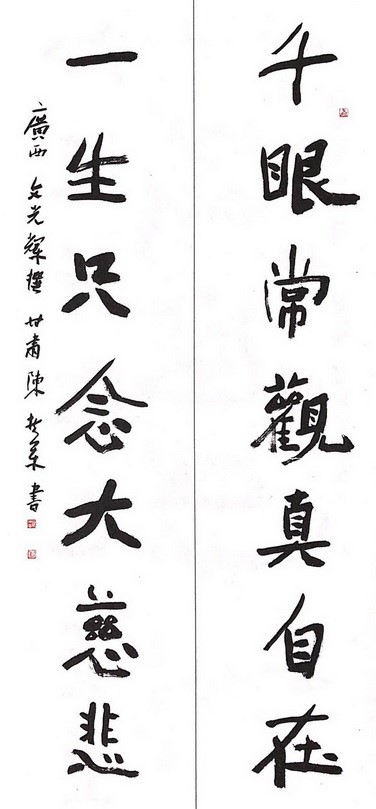 千眼常觀真自在
一生只念大慈悲
廣西 文光輝撰 甘肅陳 書